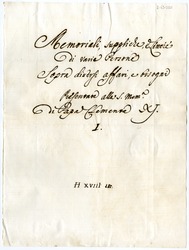 Memoriali, suppliche, e lettere
di varie Persone
Sopra diversi affari, e bisogni
Presentate alla S. Mem.
di Papa Clemente XI.
I.
H XVIII